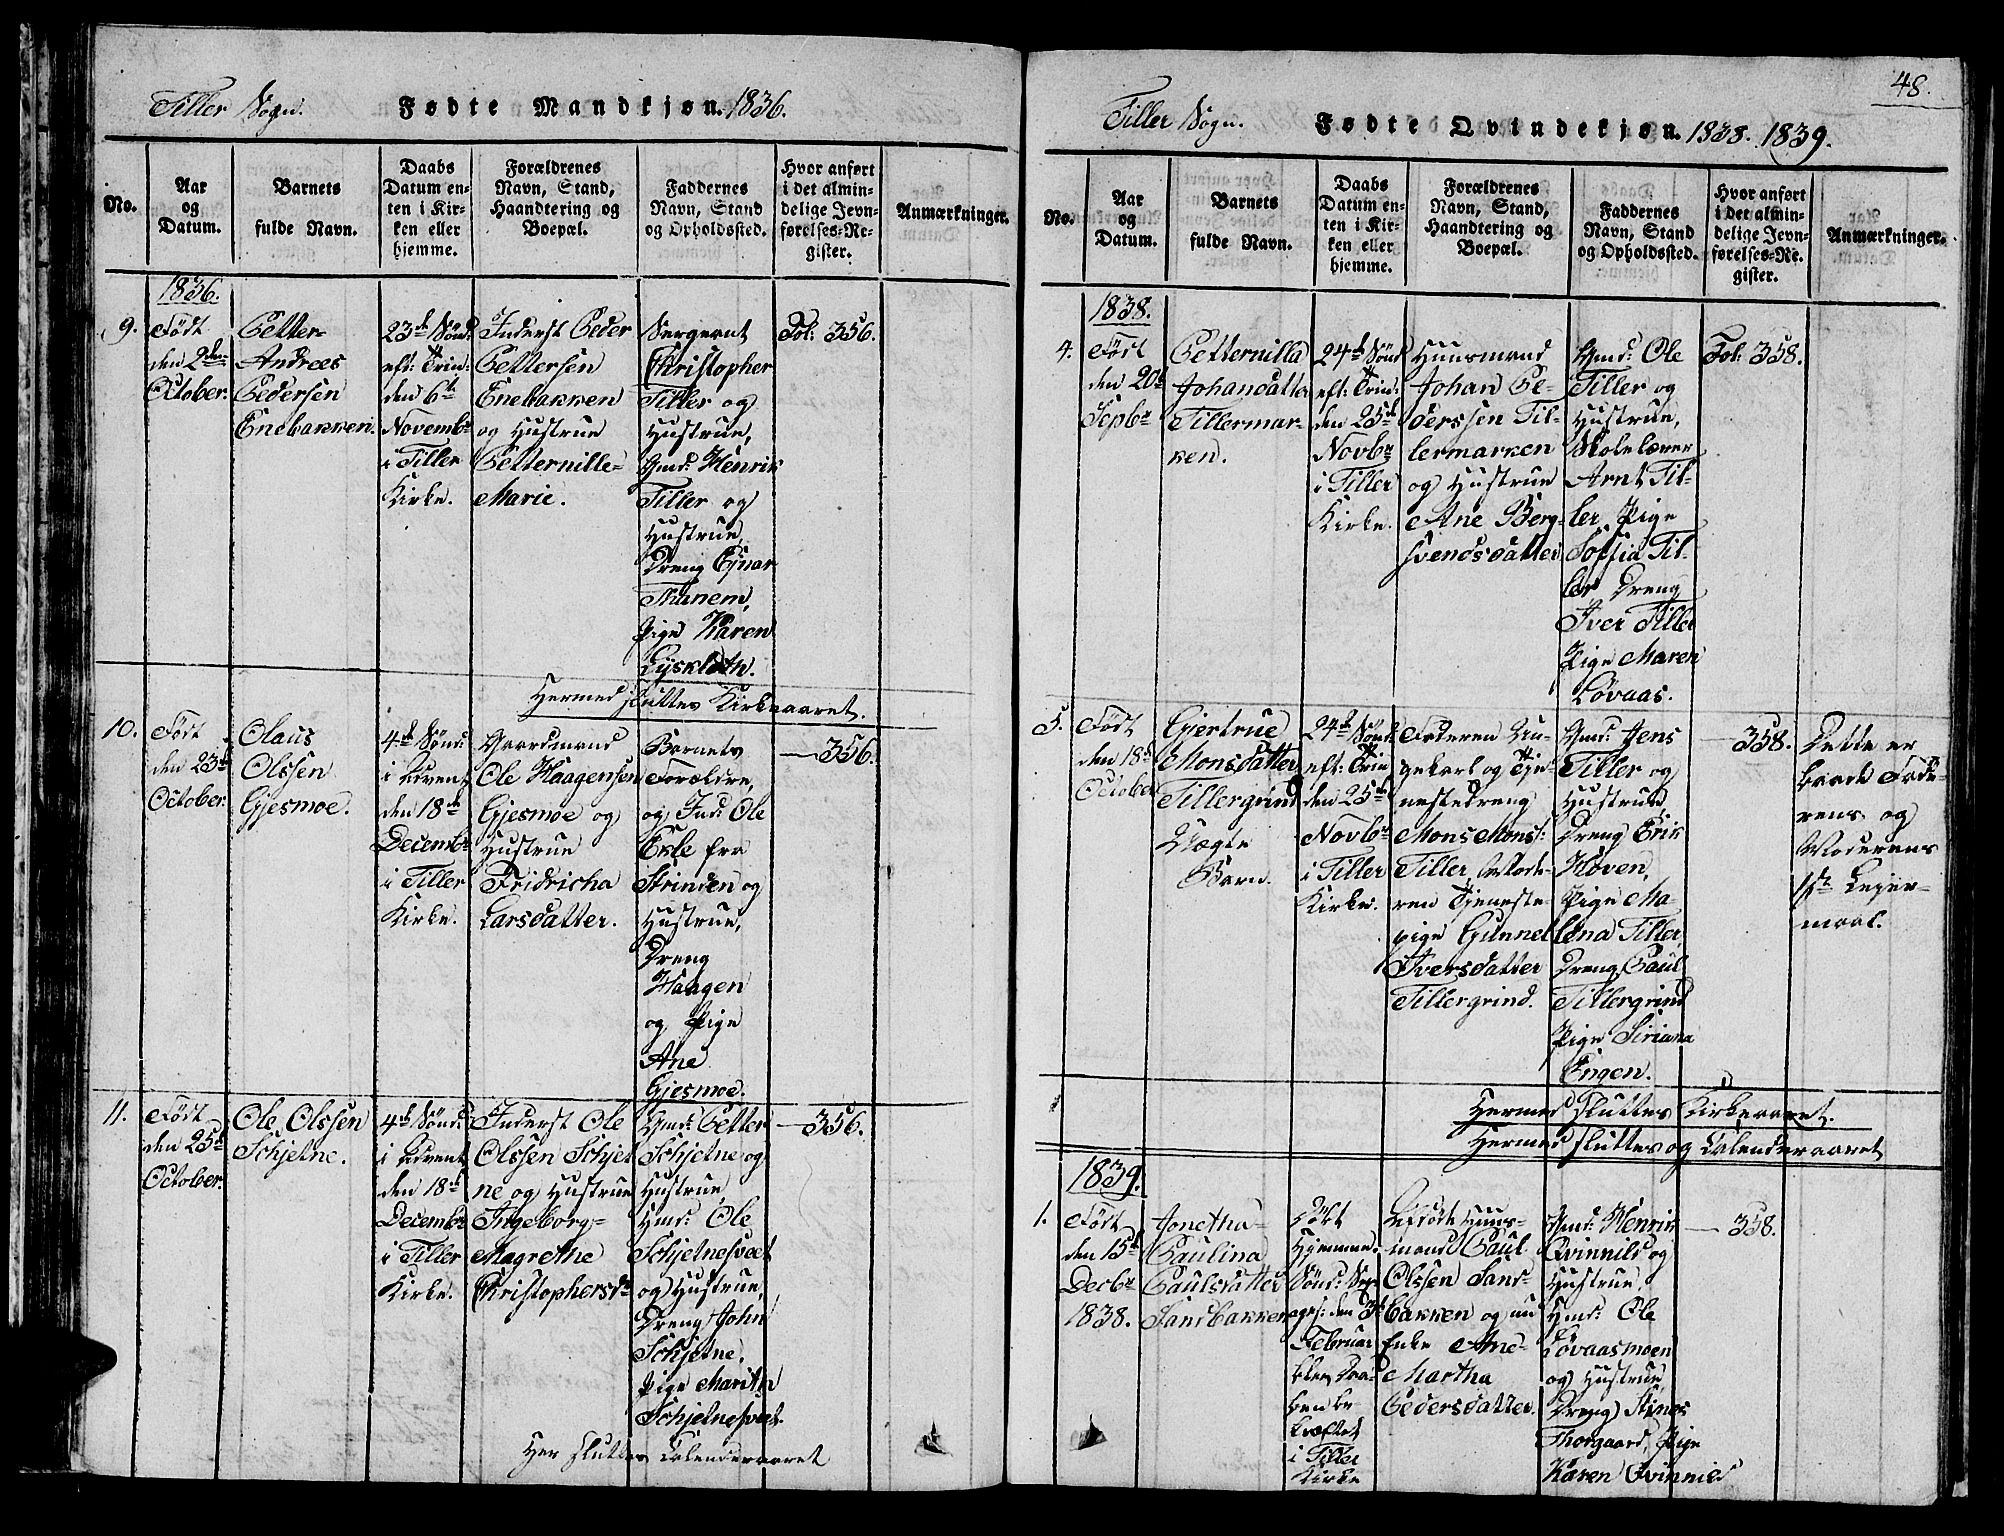 Tiller Sogn. Fødte Mandkjøn. 1836.
No.
Aar
og
Datum.
Barnets
fulde Navn.
Daabs
Datum en-
ten i Kir-
ken eller
hjemme.
Forældrenes
Navn, Stand,
Haandtering og
Boepæl.
Faddernes
Navn, Stand
og Opholdssted.
Hvor anført
i det almin-
delige Jevn-
førelses-Re-
gister.
Anmærkninger.
1836.
9.
Født
den 2den
October.
Petter
Andreas
Pedersen
Enebakken.
23de Sønd:
eft: Trin:
den 6te
Novembr
i Tiller
Kirke.
Inderst Peder
Pettersen
Enebakken
og Hustrue
Petternille
Marie.
Sergeant
Christopher
Tiller og
Hustrue,
Gmd: Henrik
Tiller og
Hustrue,
Dreng Ejnar
Thanem,
Pige Karen
Lysklæth.
Fol: 356.
Hermed sluttes Kirkeaaret.
10.
Født
den 23de
October.
Olaus
Olssen
Gjesmoe.
4de Sønd:
i Advent
den 18de
Decembr
i Tiller
Kirke.
Gaardmand
Ole Haagensen
Gjesmoe og
Hustrue
Fridricha
Larsdatter.
Barnets
Forældre,
og Ind: Ole
Ekle fra
Strinden og
Hustrue,
Dreng
Haagen
og Pige
Ane
Gjesmoe.
— 356.
11.
Født
den 25de
October.
Ole Olssen
Schjetne.
4de Sønd:
i Advent
den 18de
Decembr
i Tiller
Kirke.
Inderst Ole
Olssen Schjet
ne og Hustrue
Ingeborg
Magrethe
Christophersdr
Gmd: Petter
Schjetne og
Hustrue,
Hmd: Ole
Schjetnesvæt
og Hustrue,
Dreng John
Schjetne,
Pige Marith
Schjetnesvæt
— 356.
Her sluttes Calenderaaret
48.
Tiller Sogn. Fødte Qvindekjøn. 1838. 1839.
No.
Aar
og
Datum.
Barnets
fulde Navn.
Daabs
Datum en-
ten i Kir-
ken eller
hjemme.
Forældrenes
Navn, Stand,
Haandtering og
Boepæl.
Faddernes
Navn, Stand
og Opholdssted.
Hvor anført
i det almin-
delige Jevn-
førelses-Re-
gister.
Anmærkninger.
1838.
4.
Født
den 20de
Sepbr
Petternilla
Johansdatter
Tillermar-
ken.
24de Sønd
eft: Trin:
den 25de
Novbr
i Tiller
Kirke.
Huusmand
Johan Pe-
derssen Til-
lermarken
og Hustrue
Ane Berg-
svendsdatter
Gmd: Ole
Tiller og
Hustrue,
Skolelærer
Arnt Til-
ler, Pige
Soffia Til-
ler Dreng
Iver Tiller
Pige Maren
Løvaas.
Fol: 358.
5.
Født
den 18de
October
Gjertrue
Monsdatter
Tillergrind
Uægte
Barn.
24de Sønd:
eft: Trin
den 25de
Novbr
i Tiller
Kirke.
Faderen Un-
gekarl og Tje-
nestedreng
Mons Mons:
Tiller, Mode-
ren Tjeneste-
pige Gunnel
Iversdatter
Tillergrind.
Gmd: Jens
Tiller og
Hustrue
Dreng Erik
Hoven,
Pige Ma-
lena Tiller,
Dreng Paul
Tillergrind
Pige Siriana
Engen.
— 358.
Dette er
baade Fade-
rens og
Moderens
1ste Lejer-
maal.
Hermed sluttes Kirkeaaret.
Hermed sluttes og Calenderaaret
1839.
1.
Født
den 15de
Decbr
1838.
Jonetha
Paulina
Paulsdatter
Sandbakken
Døbt
Hjemme,
Sønd: Sep
ages: den 3de
Februar
blev Daa-
ben be-
kræftet
i Tiller
Kirke
Afdøde Huus-
mand Paul
Olssen Sand-
bakken og nu
Enke Ane
Martha
Pedersdatter.
Gmd: Henrik
Qvinnild og
Hustrue,
Hmd: Ole
Løvaasmoen
og Hustrue,
Dreng
Thorgaard, Pige
Karen Qvinnild
— 358.